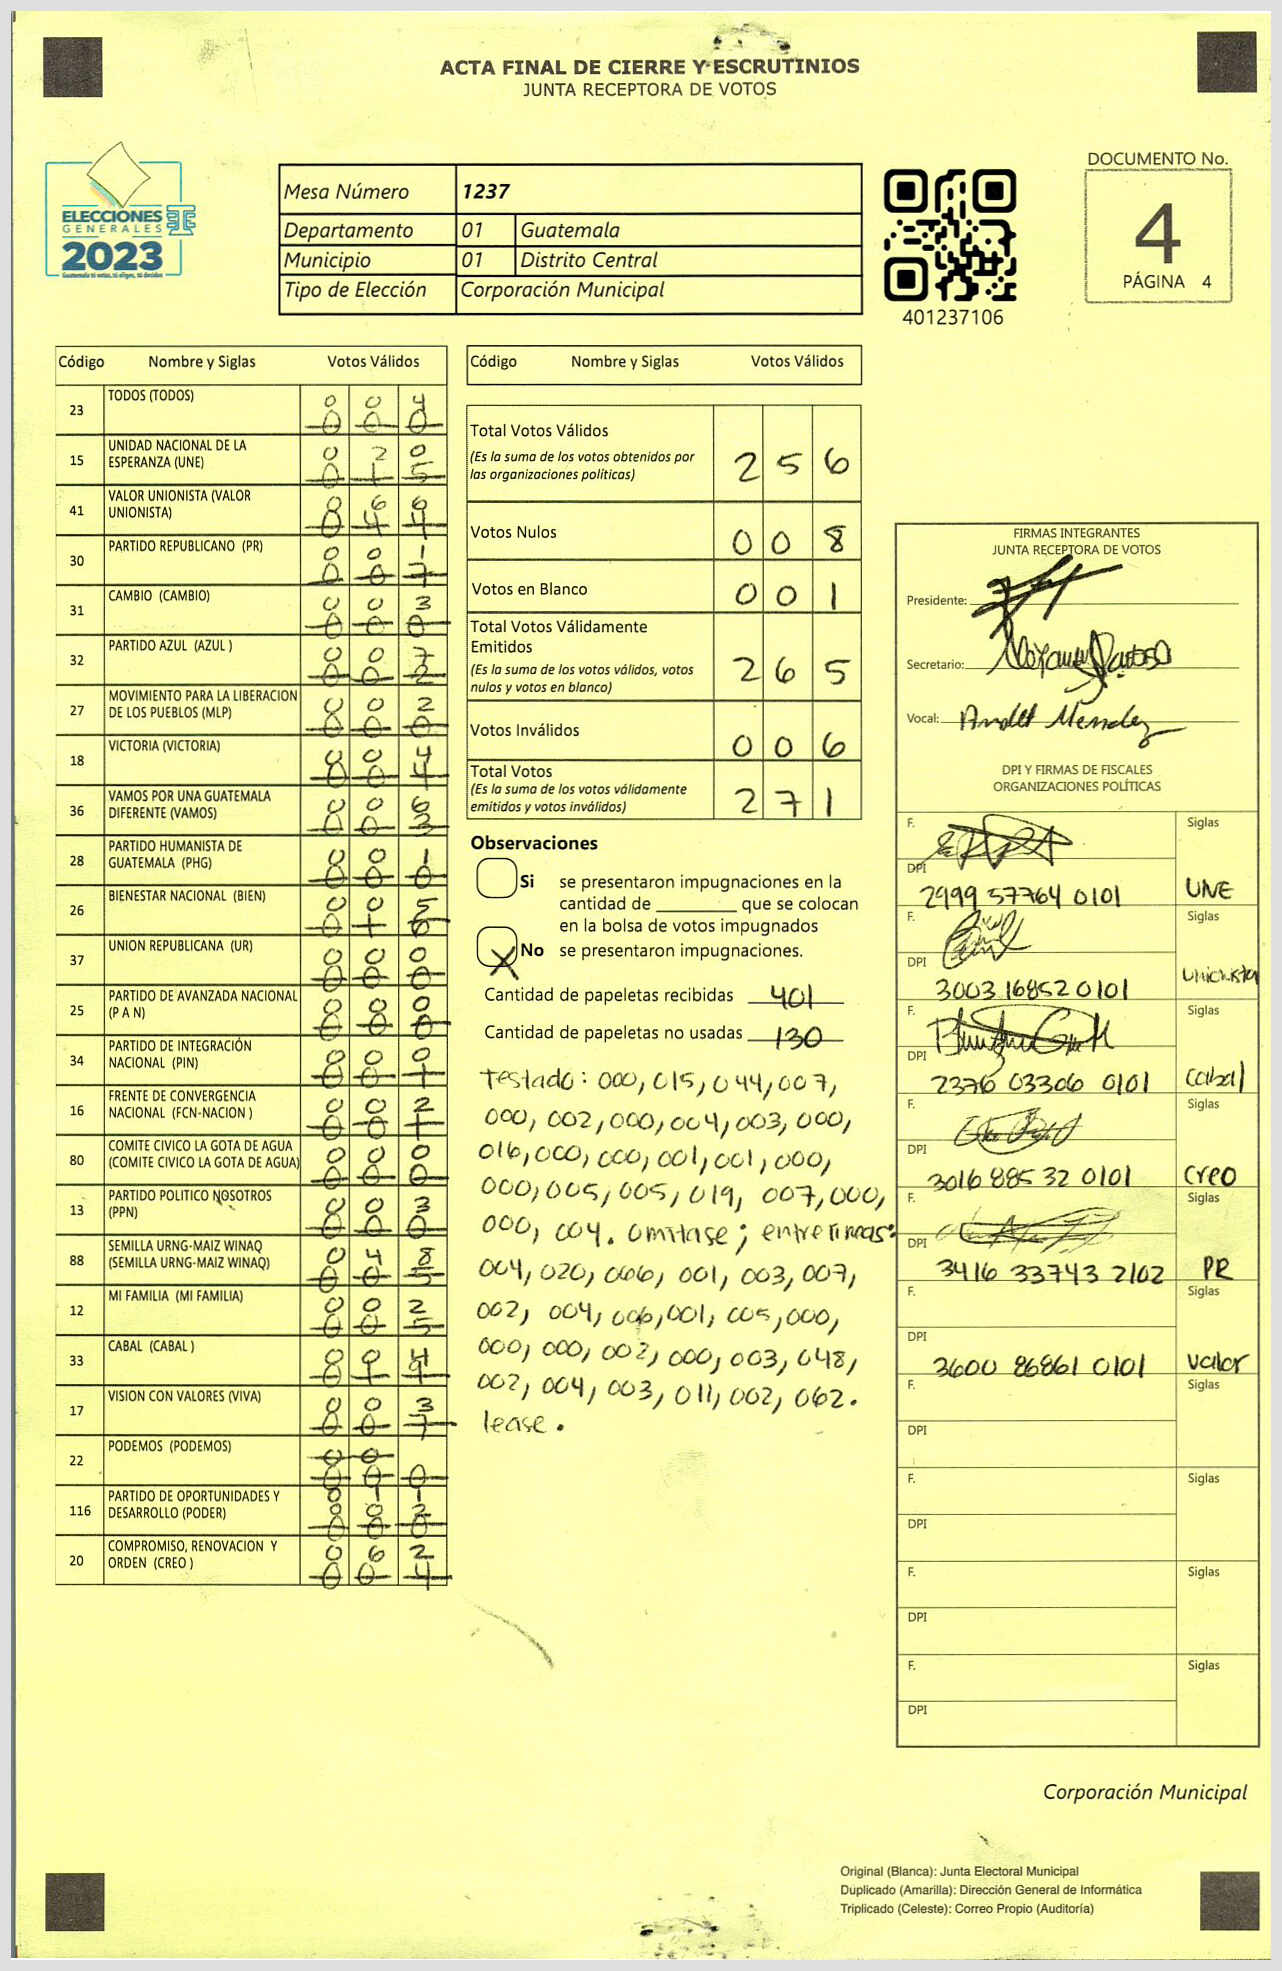 ACTA FINAL DE CIERRE Y ESCRUTINIOS
JUNTA RECEPTORA DE VOTOS
ELECCIONES
GENERALES
2023
Mesa Número 1237
Departamento 01 Guatemala
Municipio 01 Distrito Central
Tipo de Elección Corporación Municipal
401237106
DOCUMENTO No.
4
PÁGINA 4
Código Nombre y Siglas Votos Válidos
23 TODOS (TODOS) 0 0 4
0 0 0
15 UNIDAD NACIONAL DE LA ESPERANZA (UNE) 0 2 0
0 1 5
41 VALOR UNIONISTA (VALOR UNIONISTA) 0 6 6
0 4 4
30 PARTIDO REPUBLICANO (PR) 0 0 1
0 0 7
31 CAMBIO (CAMBIO) 0 0 3
0 0 0
32 PARTIDO AZUL (AZUL ) 0 0 7
0 0 2
27 MOVIMIENTO PARA LA LIBERACION DE LOS PUEBLOS (MLP) 0 0 2
0 0 0
18 VICTORIA (VICTORIA) 0 0 4
0 0 4
36 VAMOS POR UNA GUATEMALA DIFERENTE (VAMOS) 0 0 6
0 0 3
28 PARTIDO HUMANISTA DE GUATEMALA (PHG) 0 0 1
0 0 0
26 BIENESTAR NACIONAL (BIEN) 0 0 5
0 1 6
37 UNION REPUBLICANA (UR) 0 0 0
0 0 0
25 PARTIDO DE AVANZADA NACIONAL (P A N) 0 0 0
0 0 0
34 PARTIDO DE INTEGRACIÓN NACIONAL (PIN) 0 0 0
0 0 1
16 FRENTE DE CONVERGENCIA NACIONAL (FCN-NACION ) 0 0 2
0 0 1
80 COMITE CIVICO LA GOTA DE AGUA (COMITE CIVICO LA GOTA DE AGUA) 0 0 0
0 0 0
13 PARTIDO POLITICO NOSOTROS (PPN) 0 0 3
0 0 0
88 SEMILLA URNG-MAIZ WINAQ (SEMILLA URNG-MAIZ WINAQ) 0 4 8
0 0 5
12 MI FAMILIA (MI FAMILIA) 0 0 2
0 0 5
33 CABAL (CABAL ) 0 0 4
0 1 9
17 VISION CON VALORES (VIVA) 0 0 3
0 0 7
22 PODEMOS (PODEMOS) 0 0
0 0 0
0 1 1
116 PARTIDO DE OPORTUNIDADES Y DESARROLLO (PODER) 0 0 2
0 0 0
20 COMPROMISO, RENOVACION Y ORDEN (CREO ) 0 6 2
0 0 4
Código Nombre y Siglas Votos Válidos
Total Votos Válidos 2 5 6
(Es la suma de los votos obtenidos por
las organizaciones políticas)
Votos Nulos 0 0 8
Votos en Blanco 0 0 1
Total Votos Válidamente
Emitidos 2 6 5
(Es la suma de los votos válidos, votos
nulos y votos en blanco)
Votos Inválidos 0 0 6
Total Votos 2 7 1
(Es la suma de los votos válidamente
emitidos y votos inválidos)
Observaciones
Si se presentaron impugnaciones en la
cantidad de ________ que se colocan
en la bolsa de votos impugnados
X No se presentaron impugnaciones.
Cantidad de papeletas recibidas 401
Cantidad de papeletas no usadas 130
Testado: 000, 015, 044, 007,
000, 002, 000, 004, 003, 000,
016, 000, 000, 001, 001, 000,
000, 005, 005, 019, 007, 000,
000, 004. omitase; entre lineas:
004, 020, 066, 001, 003, 007,
002, 004, 006, 001, 005, 000,
000, 000, 002, 000, 003, 048,
002, 004, 003, 011, 002, 062.
lease.
FIRMAS INTEGRANTES
JUNTA RECEPTORA DE VOTOS
Presidente:
Secretario:
Vocal: Mendez
DPI Y FIRMAS DE FISCALES
ORGANIZACIONES POLÍTICAS
F. Siglas
DPI 2999 57764 0101 UNE
F. Siglas
DPI 3003 16852 0101 Unionista
F. Siglas
DPI 2376 03306 0101 Cabal
F. Siglas
DPI 3016 885 32 0101 Creo
F. Siglas
DPI 3416 33743 2102 PR
F. Siglas
DPI 3600 86861 0101 Valor
F. Siglas
DPI
F. Siglas
DPI
F. Siglas
DPI
F. Siglas
DPI
Corporación Municipal
Original (Blanca): Junta Electoral Municipal
Duplicado (Amarilla): Dirección General de Informática
Triplicado (Celeste): Correo Propio (Auditoría)